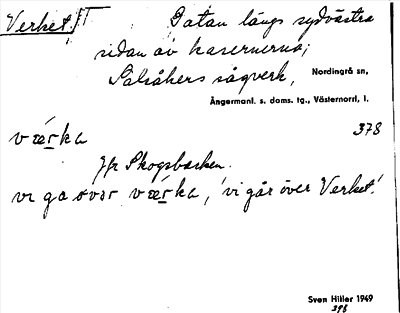 Verket. Gatan längs sydvästra
sidan av kasernerna;
Salsåkers sågverk, Nordingrå sn,
Ångermanl. s. doms. tg., Västernorrl. l.
værka 378
Jfr Skogsbacken.
vi ga övər værka, 'vi går över Verket'.
Sven Hiller 1949
398